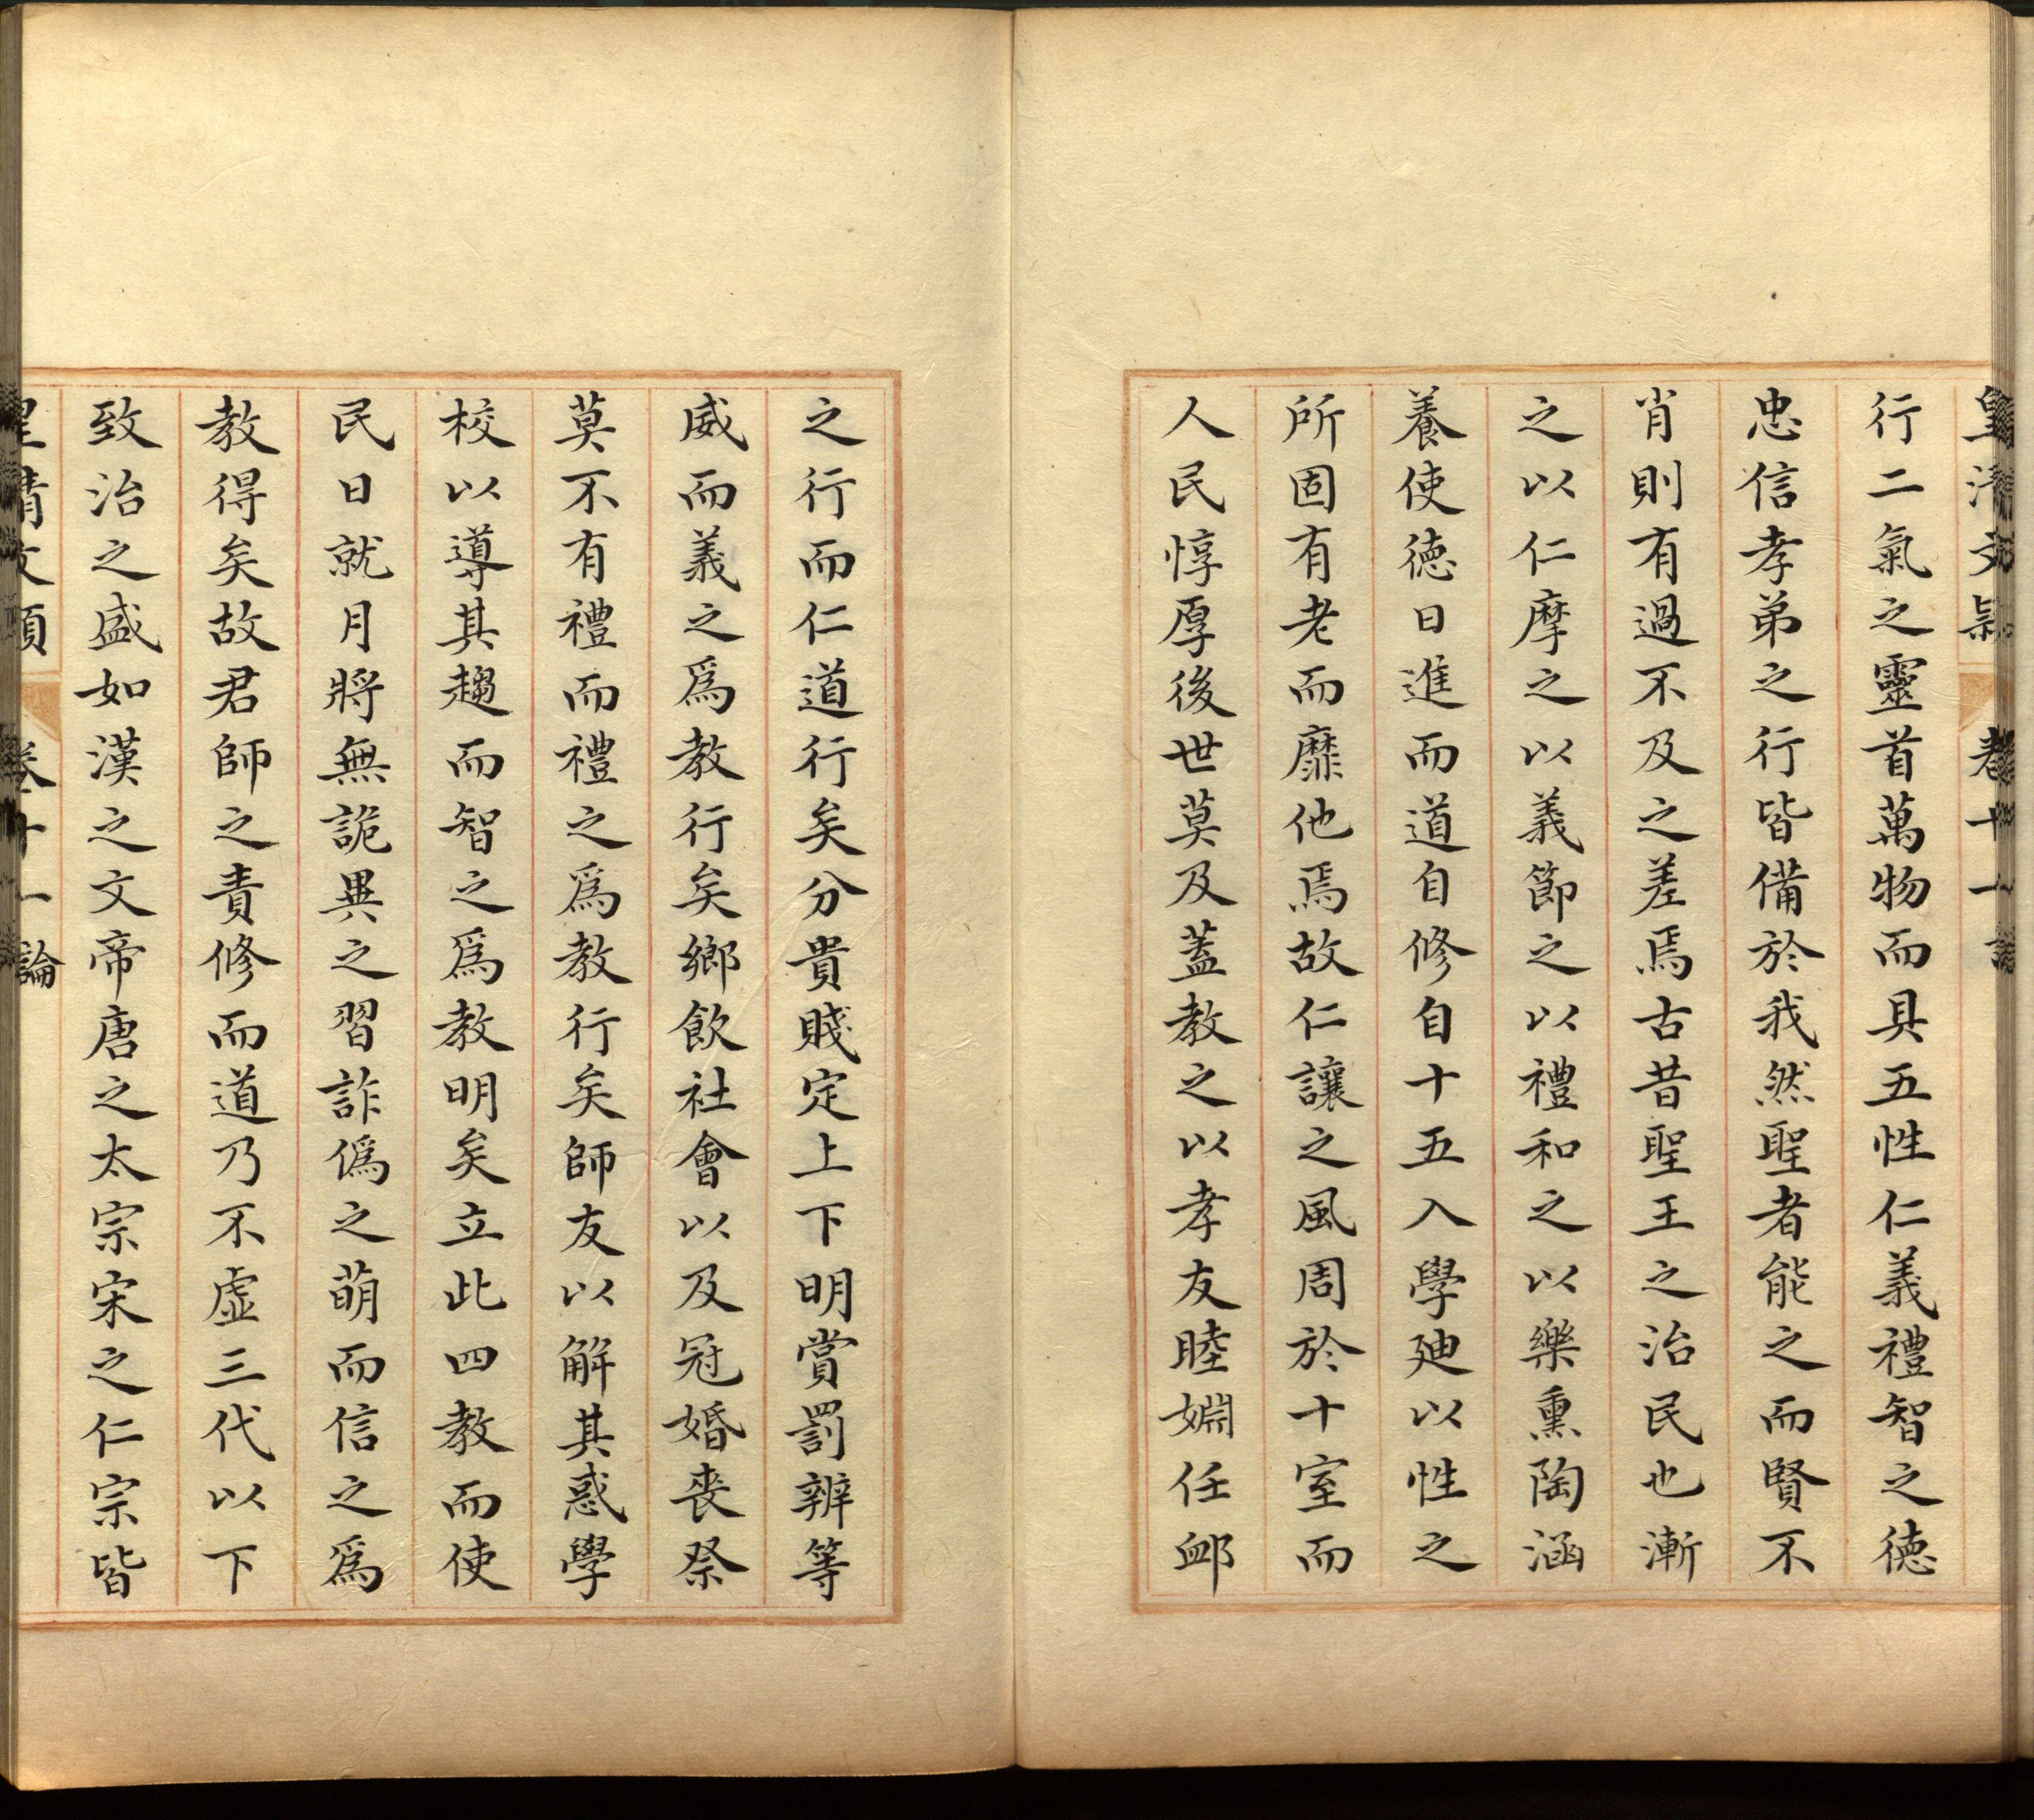 行二氣之靈首萬物而具五性仁義禮智之德
忠信孝弟之行皆備於我然聖者能之而賢不
肖則有過不及之差焉古昔聖王之治民也漸
之以仁摩之以義節之以禮和之以樂熏陶涵
養使德日進而道自修自十五入學迪以性之
所固有老而靡他焉故仁讓之風周於十室而
人民惇厚後世莫及蓋教之以孝友睦婣任卹
之行而仁道行矣分貴賤定上下明賞罰辨等
威而義之爲教行矣鄉飲社會以及冠婚喪祭
莫不有禮而禮之爲教行矣師友以解其惑學
校以導其趨而智之爲教明矣立此四教而使
民日就月將無詭異之習詐僞之萌而信之爲
教得矣故君師之責修而道乃不虛三代以下
致治之盛如漢之文帝唐之太宗宋之仁宗皆
皇清文穎 卷十一 論